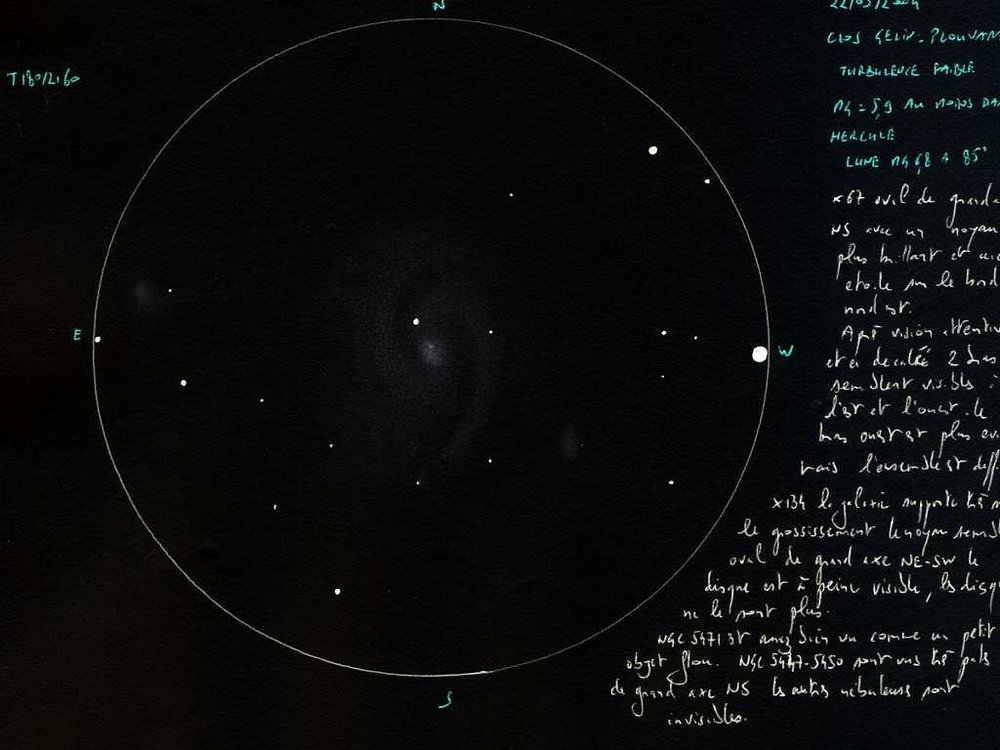 N
T180/2160
E
W
S
22/05/2004
CLOS GELIN. PLOUVAN
TURBULENCE FAIBLE
M4 = 5,9 AU MOINS DA
HERCULE
LUNE
x67 oval de grand a
NS avec un noyau
plus brillant et un
etoile sur le bord
nord est.
Aprè vision attentiv
et et decalée 2 bras
semblent visibls à
l'est et l'ouest. le
bras ouest est plus ev
mais l'ensemble est diff
x134 la galaxie supporte très m
le grossissement le noyau sembl
oval de grand axe NE-SW le
disque est à peine visible, les
ne le sont plus.
NGC 5471 est assez bien vu comme un petit
objet flou. NGC 5447-5450 sont vus très pals
de grand axe NS les autres nebuleuses sont
invisibles.